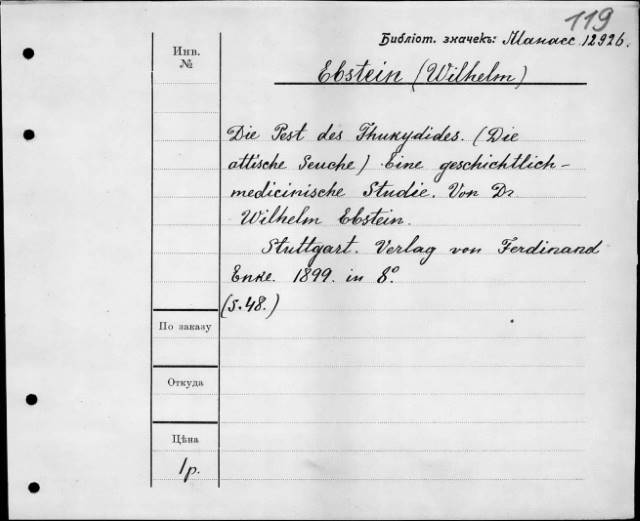 119
Библіот. значекъ: Манасс. 12926.
Инв.
№
Ebstein (Wilhelm)
Die Pest des Thukydides. (Die
attische Seuche) Eine geschichtlich-
medicinische Studie. Von Dr
Wilhelm Ebstein.
Stuttgart. Verlag von Ferdinand
Enke. 1899. in 8°.
(S. 48.)
По заказу
Откуда
Цѣна
1р.